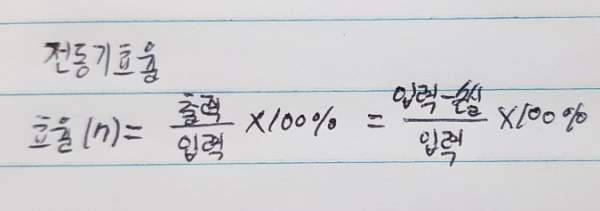 전동기효율
효율(η) = 출력/입력 ×100% = 입력-손실/입력 ×100%